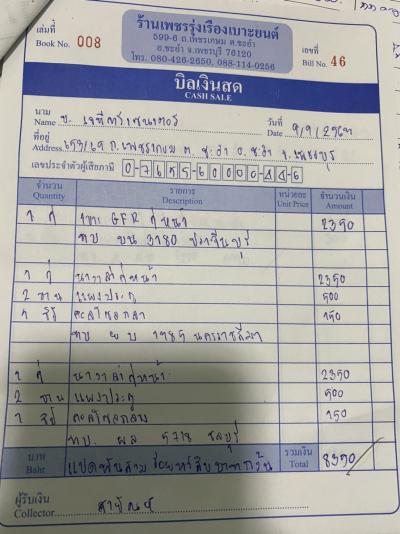 เล่มที่
Book No. 008
ร้านเพชรรุ่งเรืองเบาะยนต์
599-6 ถ.เพชรเกษม ต.ชะอำ
อ.ชะอำ จ.เพชรบุรี 76120
โทร. 080-426-2650, 088-114-0256
เลขที่
Bill No. 46
บิลเงินสด
CASH SALE
นาม
Name
วันที่
Date
ที่อยู่
Address ถ.เพชรเกษม ต.ชะอำ อ.ชะอำ จ.เพชรบุรี
เลขประจำตัวผู้เสียภาษี 0-7655-60000-44-6
จำนวน รายการ หน่วยละ จำนวนเงิน
Quantity Description Unit Price Amount
1 คู่ คู่หน้า 2350
ทบ บน 3180 ปราจีนบุรี
1 คู่ คู่หน้า 2350
2 บาน แผงประตู 500
1 150
ทบ ผบ 1985 นครราชสีมา
1 คู่ คู่หน้า 2350
2 บาน แผงประตู 500
1 150
ทบ. ผล 5718 ชลบุรี
บาท
Baht แปดพันสามร้อยห้าสิบบาทถ้วน
รวมเงิน
Total 8350
ผู้รับเงิน
Collector